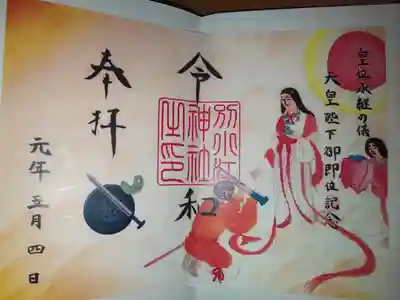 皇位承継の儀
天皇陛下御即位記念
令和
奉拝
元年五月四日
別小江
神社
之印